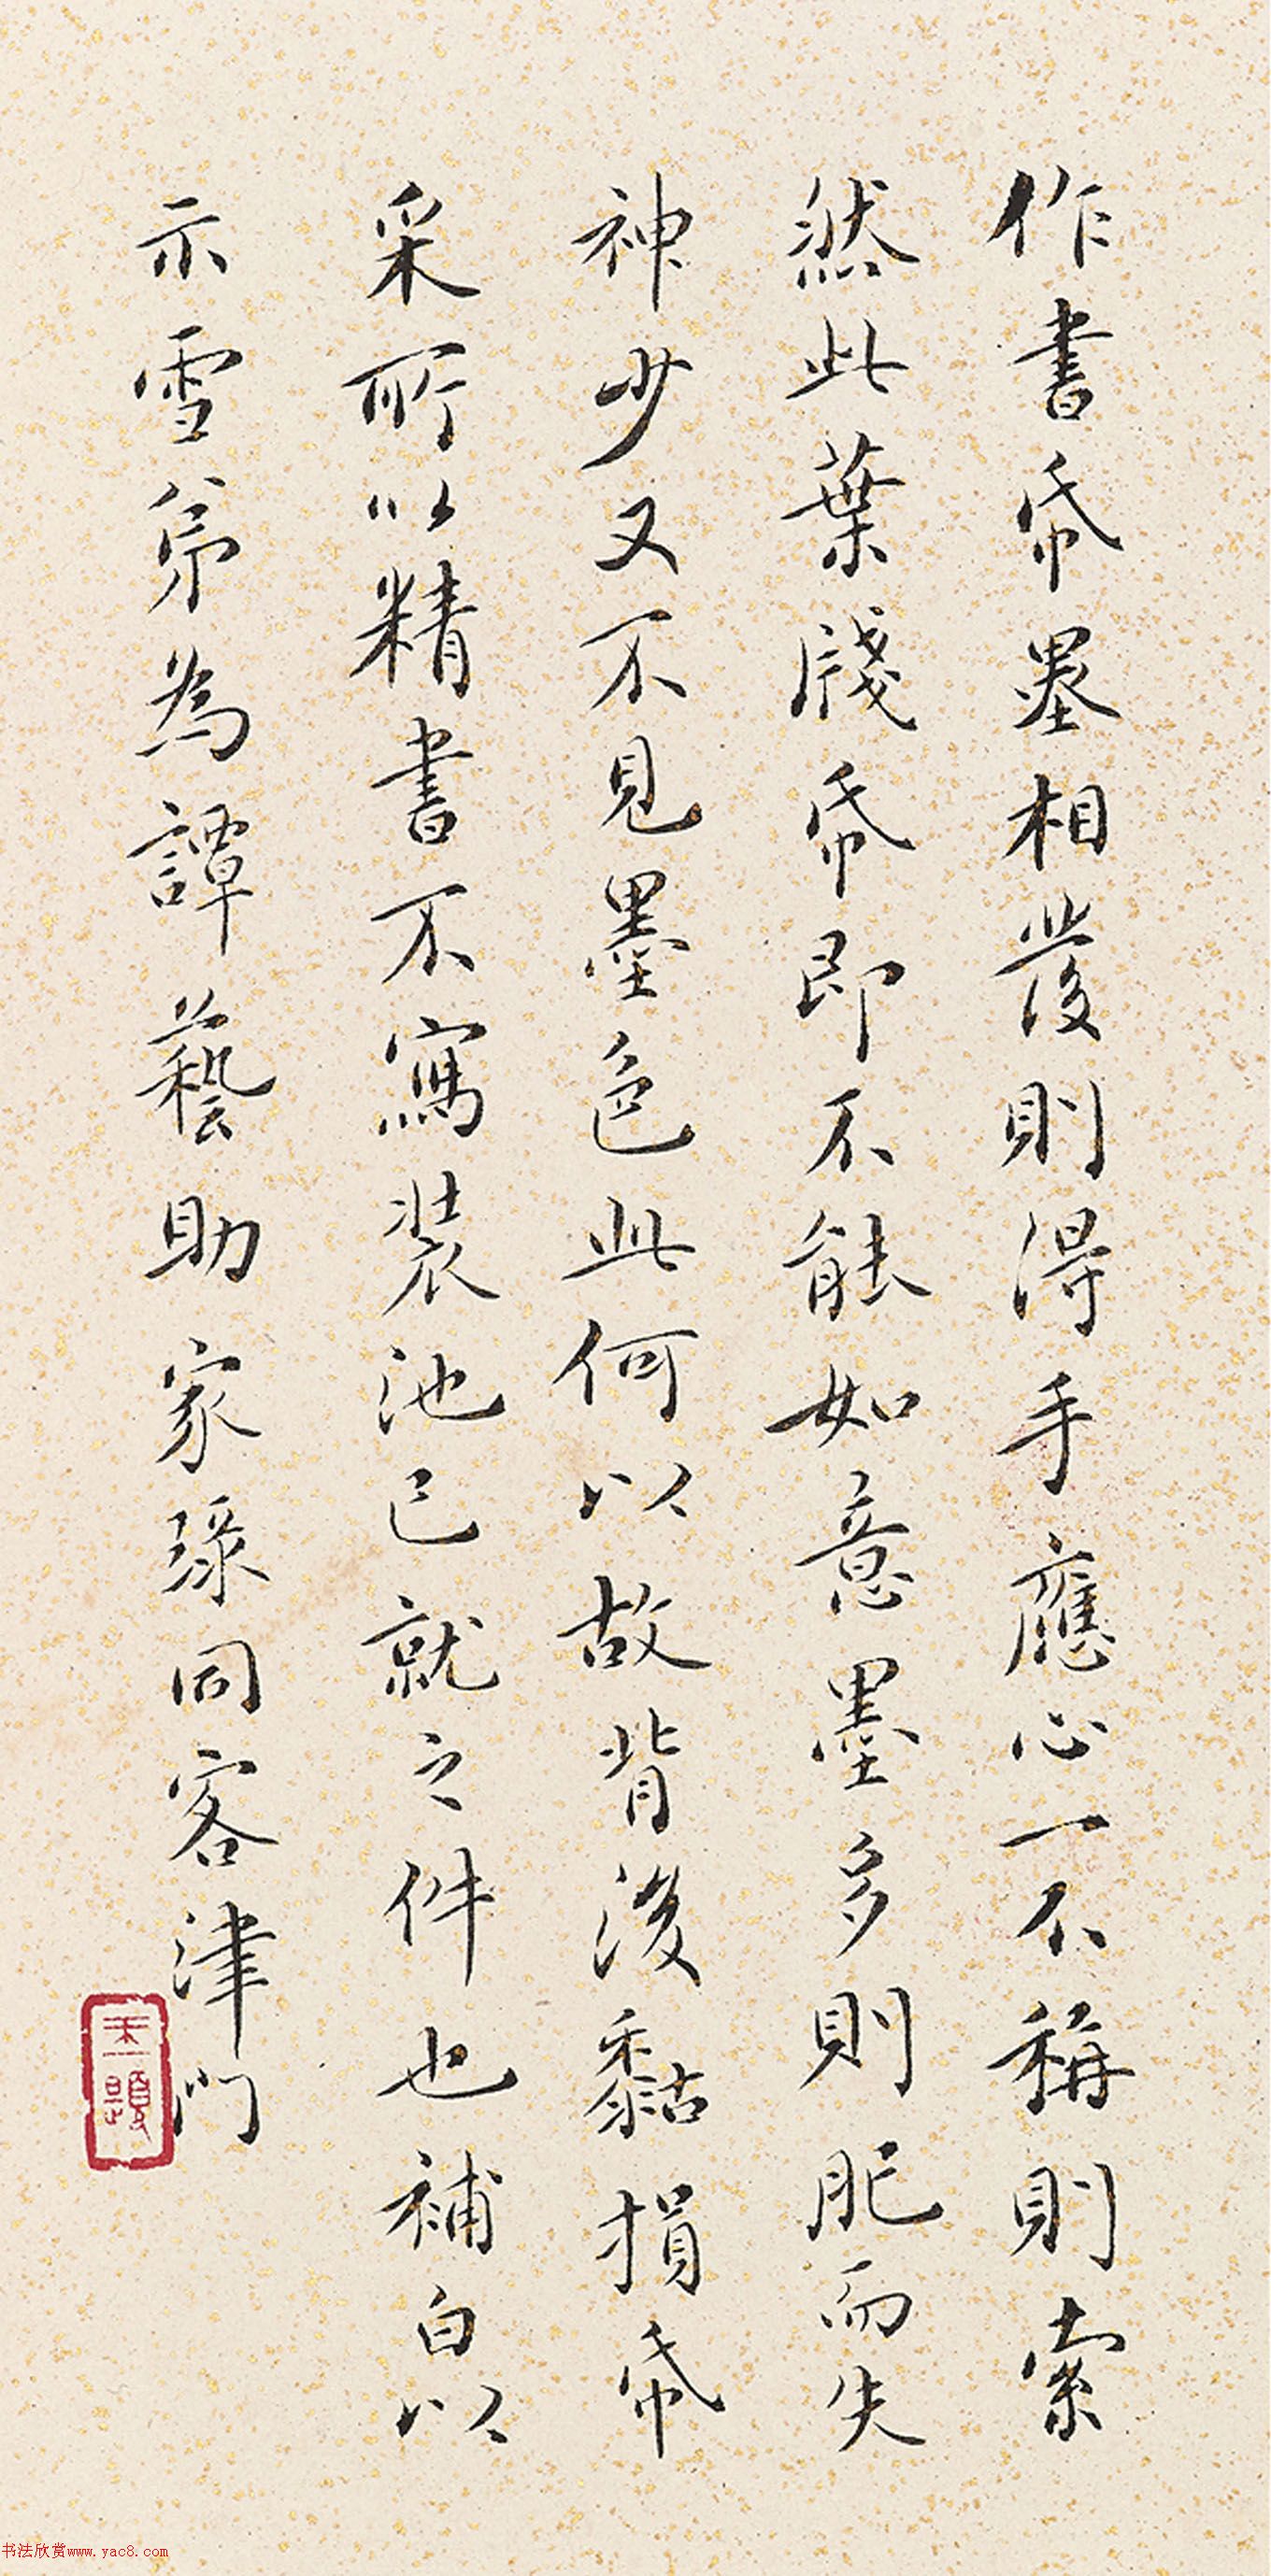 作書帋墨相發則得手應心一不稱則索
然此葉牋帋即不能如意墨多則肥而失
神少又不見墨色此何以故背後黏損帋
采所以精書不寫裝池已就之件也補白以
示雪弟為譚藝助家琭同客津門
玉題
书法欣赏www.yac8.com